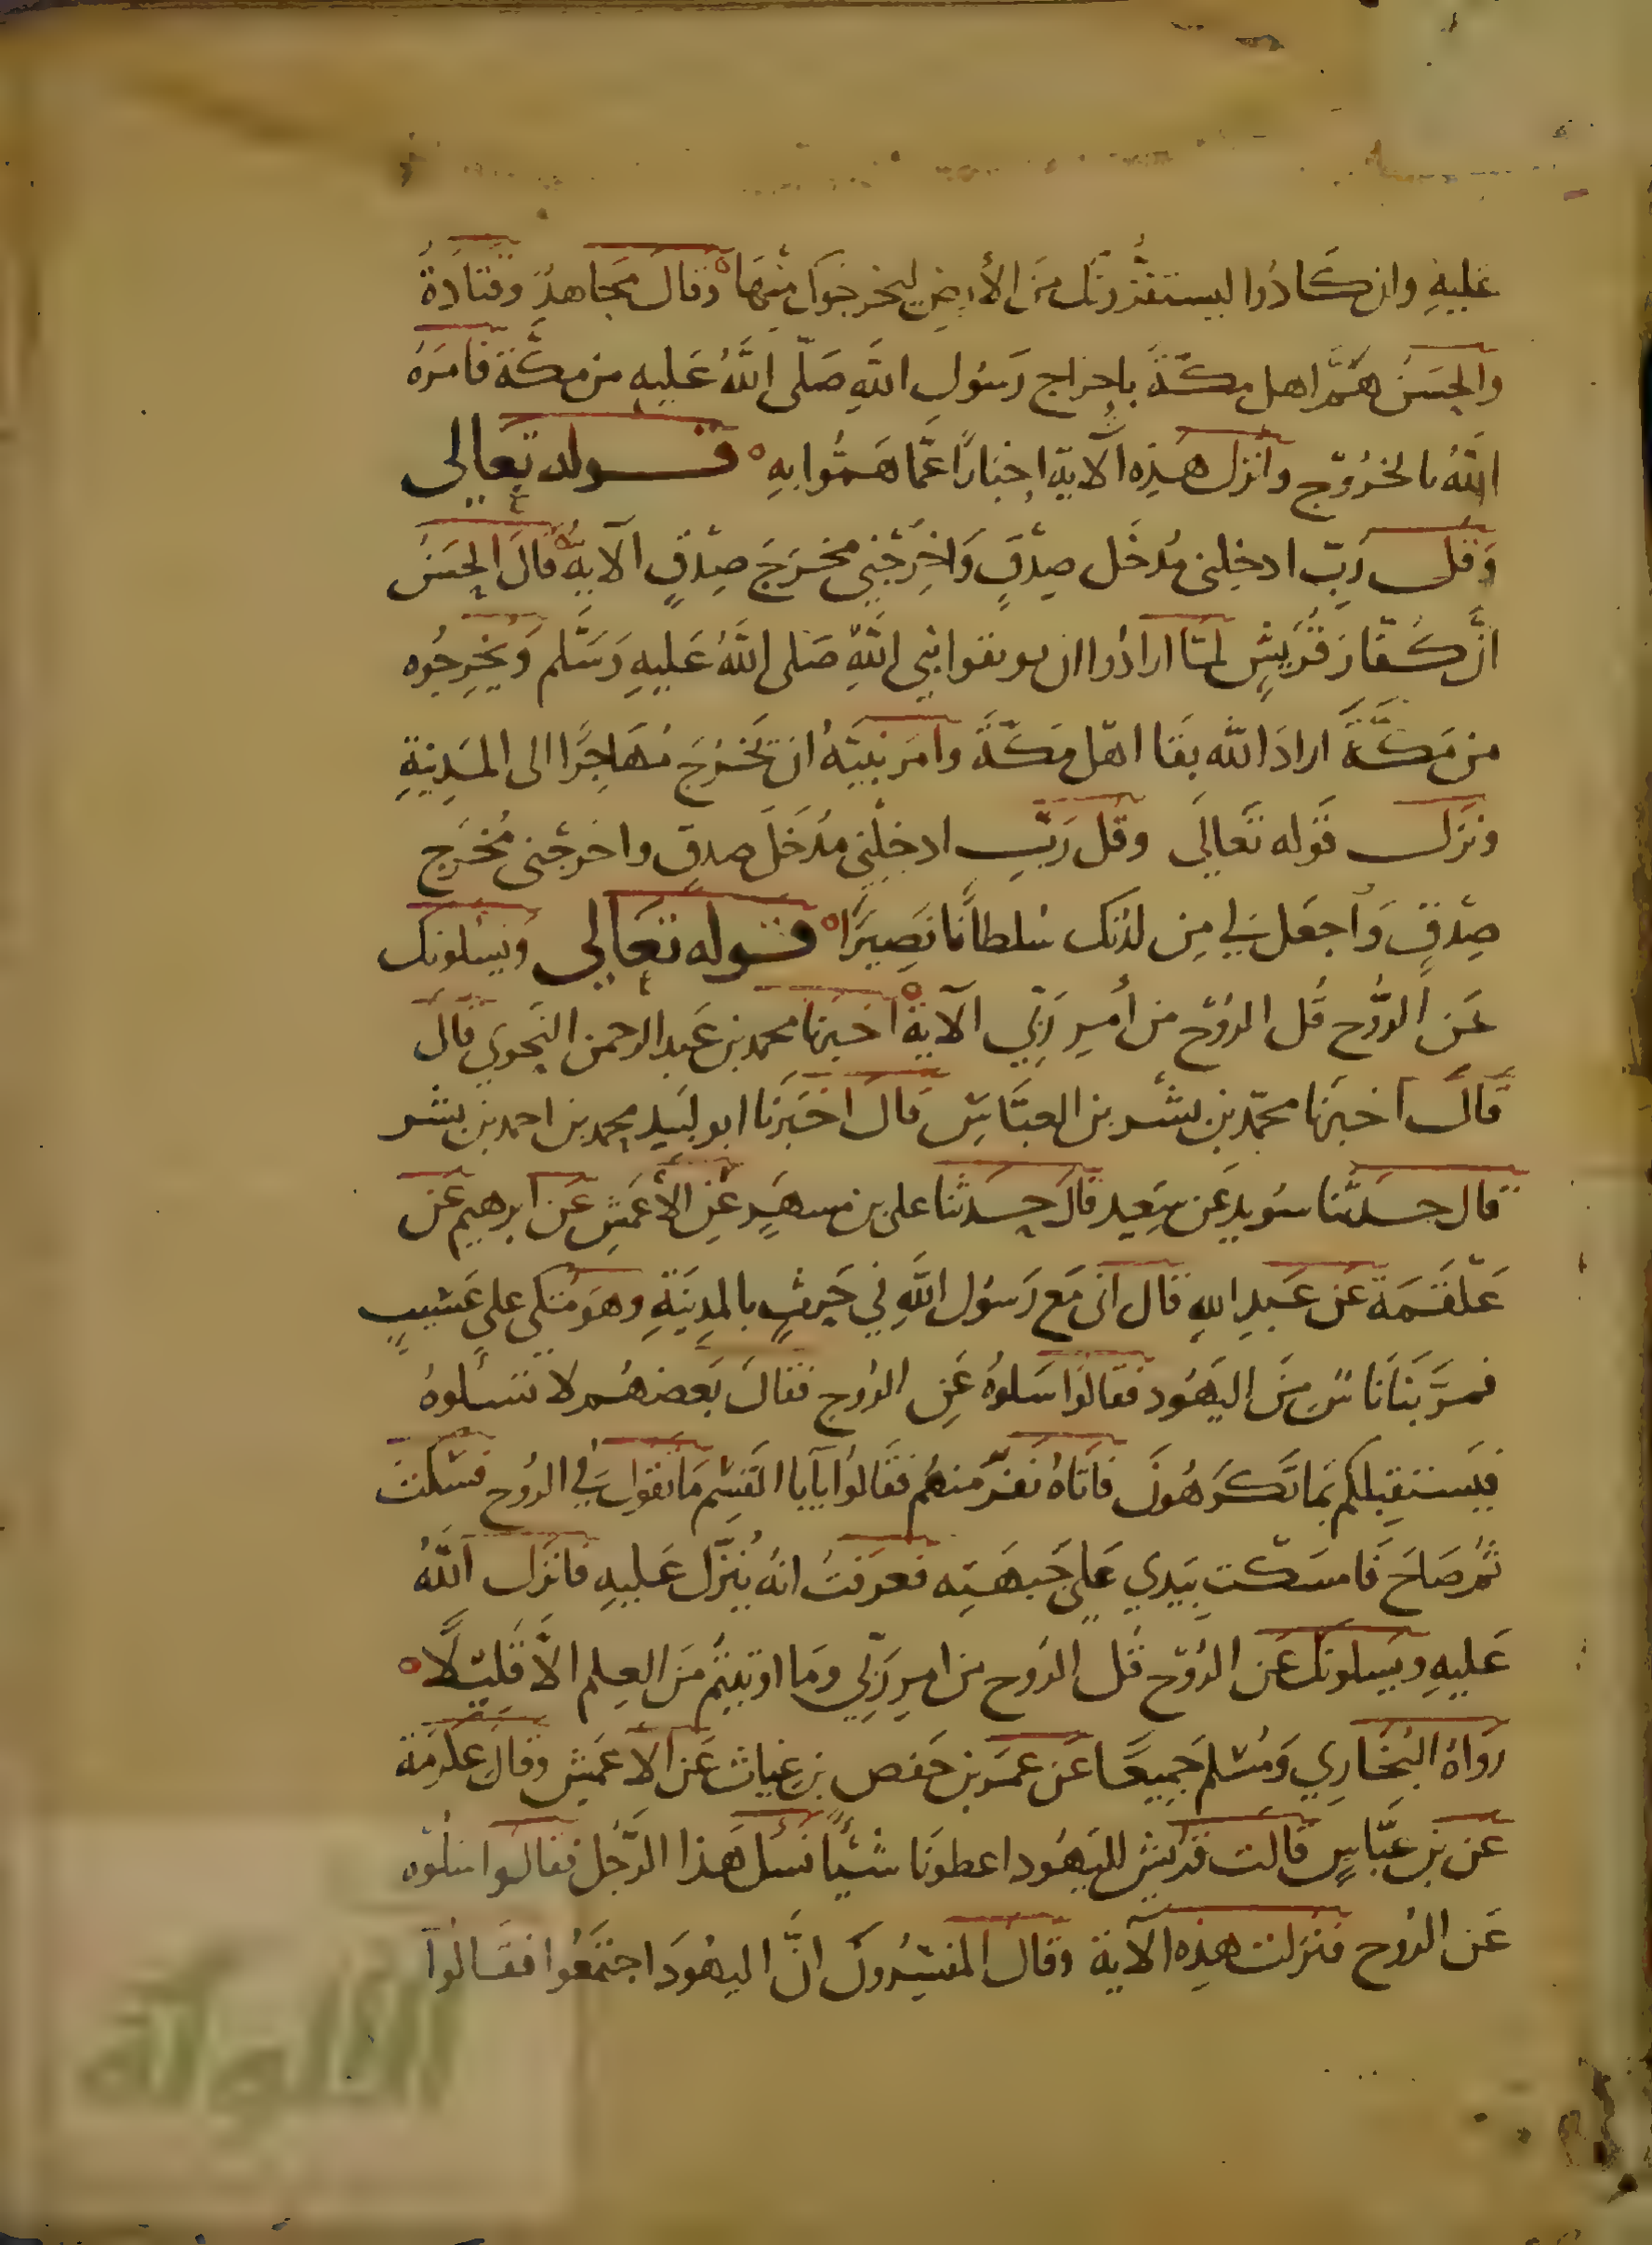 عليه وان كادوا ليستفزونك من الأرض ليخرجوك منها وقال مجاهد وقتادة
والحسن همّ اهل مكة باخراج رسول الله صلى الله عليه من مكة فامره
الله بالخروج وانزل هذه الآية اخبارًا عمّا همّوا به قوله تعالى
وقل ربّ ادخلني مدخل صدق واخرجني مخرج صدق الآية قال الحسن
انّ كفّار قريش لمّا ارادوا ان يوثقوا نبي الله صلى الله عليه وسلم ويخرجوه
من مكة اراد الله بقا اهل مكة وامر نبيه ان يخرج مهاجرًا الى المدينة
ونزل قوله تعالى وقل ربّ ادخلني مدخل صدق واخرجني مخرج
صدق واجعل لي من لدنك سلطانا نصيرًا قوله تعالى ويسلونك
عن الرّوح قل الروح من أمر ربّي الآية اخبرنا محمد بن عبد الرحمن النحوي قال
قال اخبرنا محمّد بن بشر بن العبّاس قال اخبرنا ابو لبيد محمد بن احمد بن بشر
قال حدّثنا سويد عن سعيد قال حدثنا علي بن مسهر عن الأعمش عن ابرهيم عن
علقمة عن عبد الله قال انى مع رسول الله في حرث بالمدينة وهو متكي على عسيب
فمرّ بنا ناس من اليهود فقالوا سلوه عن الروح فقال بعضهم لا تسألوه
فيستقبلكم بما تكرهون فاتاه نفر منهم فقالوا يآبا القسم ما تقول في الروح فسكت
ثم صاح فامسكت بيدي على جبهته فعرفت انه ينزّل عليه فانزل الله
عليه ويسلونك عن الروح قل الروح من امر ربّي وما اوتيتم من العلم الاّ قليلًا
رواه البخاري ومسلم جميعًا عن عمر بن حفص بن غياث عن الأعمش وقال عكرمة
عن بن عبّاس قالت قريش لليهود اعطونا شيئًا نسئل هذا الرّجل فقالوا سلوه
عن الروح فنزلت هذه الآية وقال المفسّرون انّ اليهود اجتمعوا فقالوا
الألوكة